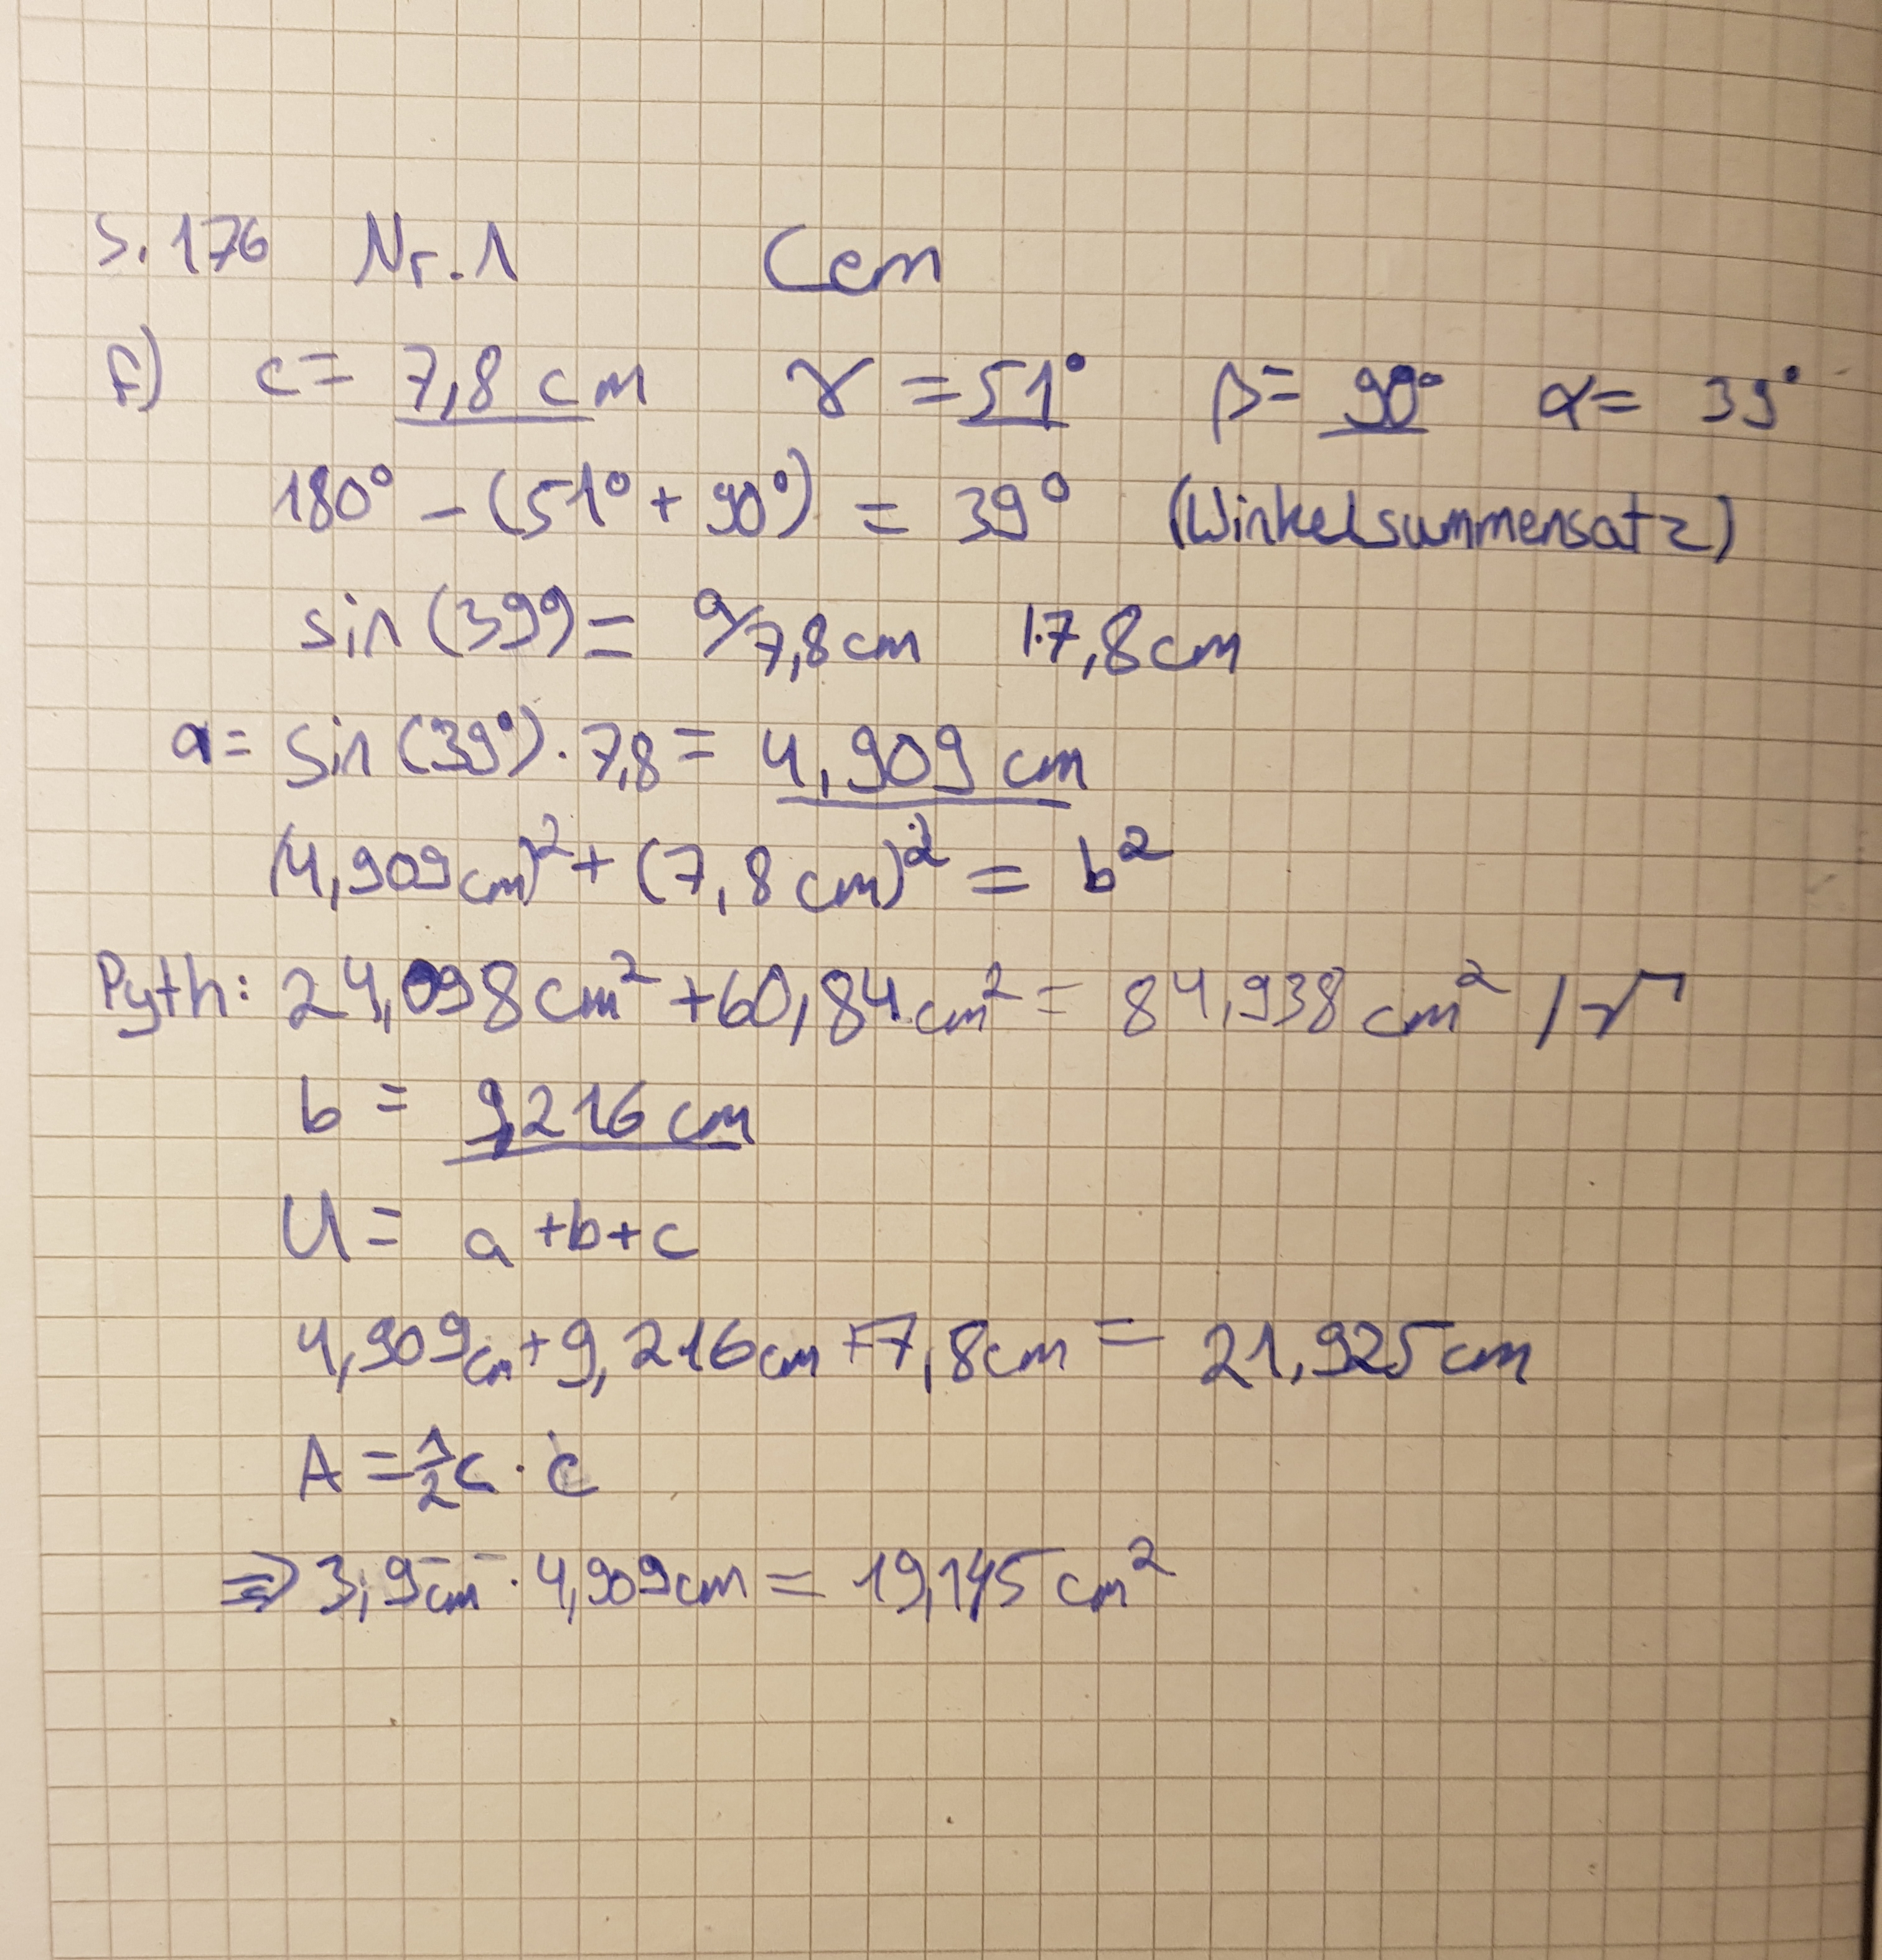 S. 176 Nr. 1 Cem
f) c = 7,8 cm γ = 51° β = 90° α = 39°
180° - (51° + 90°) = 39° (Winkelsummensatz)
sin (39°) = a/7,8cm |·7,8cm
a = sin (39°) · 7,8 = 4,909 cm
(4,909cm)² + (7,8cm)² = b²
Pyth: 24,098cm² + 60,84cm² = 84,938 cm² /√
b = 9,216 cm
U = a + b + c
4,909cm + 9,216cm + 7,8cm = 21,925 cm
A = ½ c · c
⇒ 3,9cm · 4,909cm = 19,145 cm²